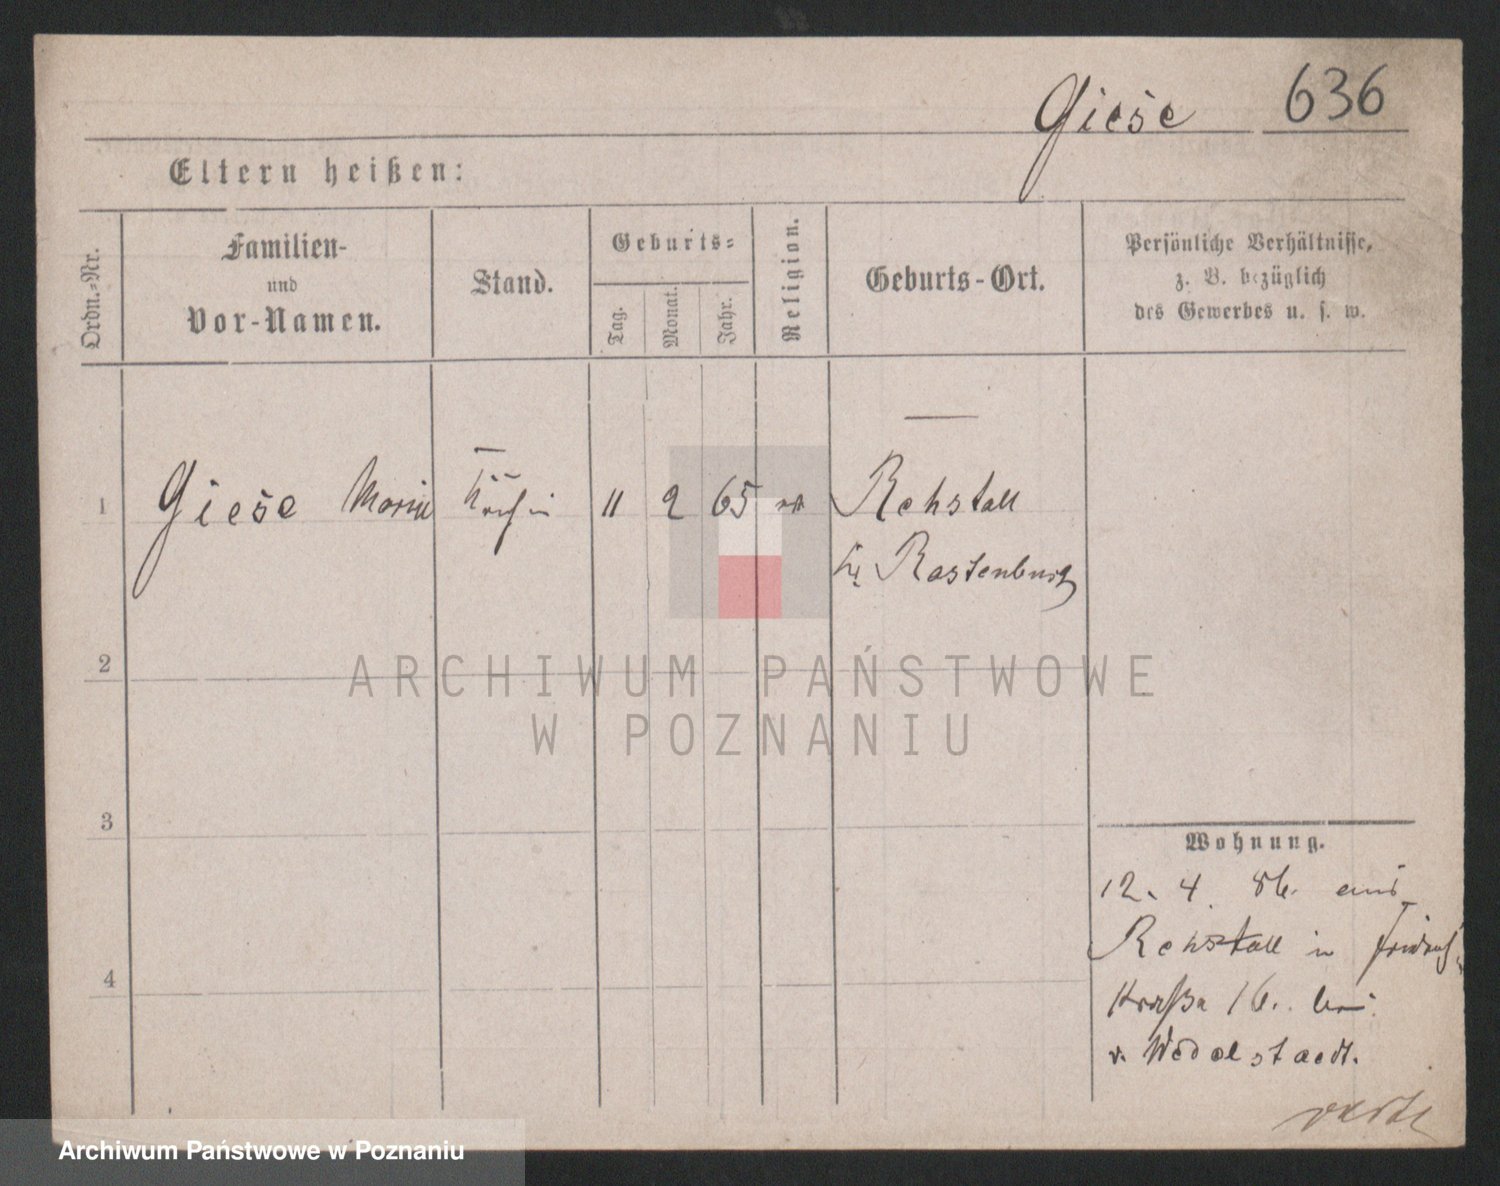 Giese 636
Eltern heißen:
Ordn.-Nr.
Familien-
und
Vor-Namen.
Stand.
Geburts-
Tag.
Monat.
Jahr.
Religion.
Geburts-Ort.
Persönliche Verhältnisse,
z. B. bezüglich
des Gewerbes u. s. w.
1 Giese Marie Köchin 11 2 65 Rehstall
Rastenburg
2
ARCHIWUM PAŃSTWOWE
W POZNANIU
3
4
Wohnung.
12. 4. 86. aus
Rehstall in Friedrich
straße 16. bei
v. Wedelstaedt.
Archiwum Państwowe w Poznaniu